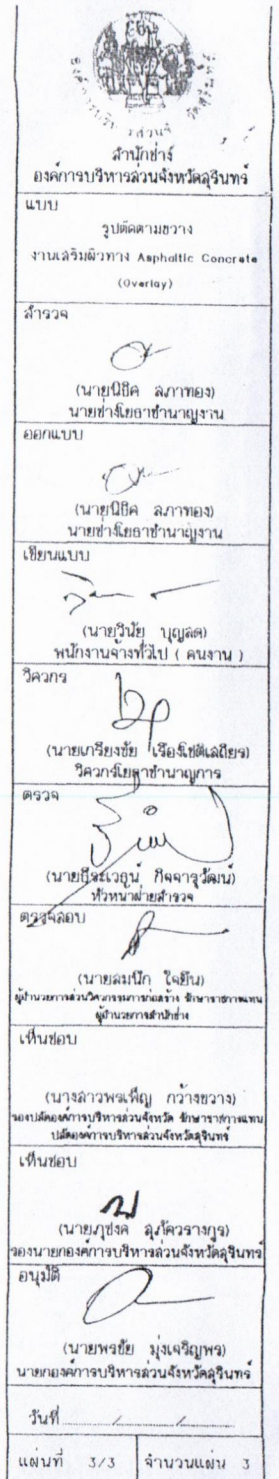 สำนักช่าง
องค์การบริหารส่วนจังหวัดสุรินทร์
แบบ
รูปตัดตามขวาง
งานเสริมผิวทาง Asphaltic Concrete
(Overlay)
สำรวจ
(นายนิธิศ สภาทอง)
นายช่างโยธาชำนาญงาน
ออกแบบ
(นายนิธิศ สภาทอง)
นายช่างโยธาชำนาญงาน
เขียนแบบ
(นายวินัย บุญสด)
พนักงานจ้างทั่วไป ( คนงาน )
วิศวกร
(นายเกรียงชัย เรืองโชติเสถียร)
วิศวกรโยธาชำนาญการ
ตรวจ
กิจจารุวัฒน์)
หัวหน้าฝ่ายสำรวจ
ตรวจสอบ
(นายสมนึก ใจยืน)
ผู้อำนวยการส่วนวิศวกรรมการก่อสร้าง รักษาราชการแทน
ผู้อำนวยการสำนักช่าง
เห็นชอบ
(นางสาวพรเพ็ญ กว้างขวาง)
รองปลัดองค์การบริหารส่วนจังหวัด รักษาราชการแทน
ปลัดองค์การบริหารส่วนจังหวัดสุรินทร์
เห็นชอบ
(นายภุชงค์ สุภัควรางกูร)
รองนายกองค์การบริหารส่วนจังหวัดสุรินทร์
อนุมัติ
(นายพรชัย มุ่งเจริญพร)
นายกองค์การบริหารส่วนจังหวัดสุรินทร์
วันที่ / /
แผ่นที่ 3/3 จำนวนแผ่น 3